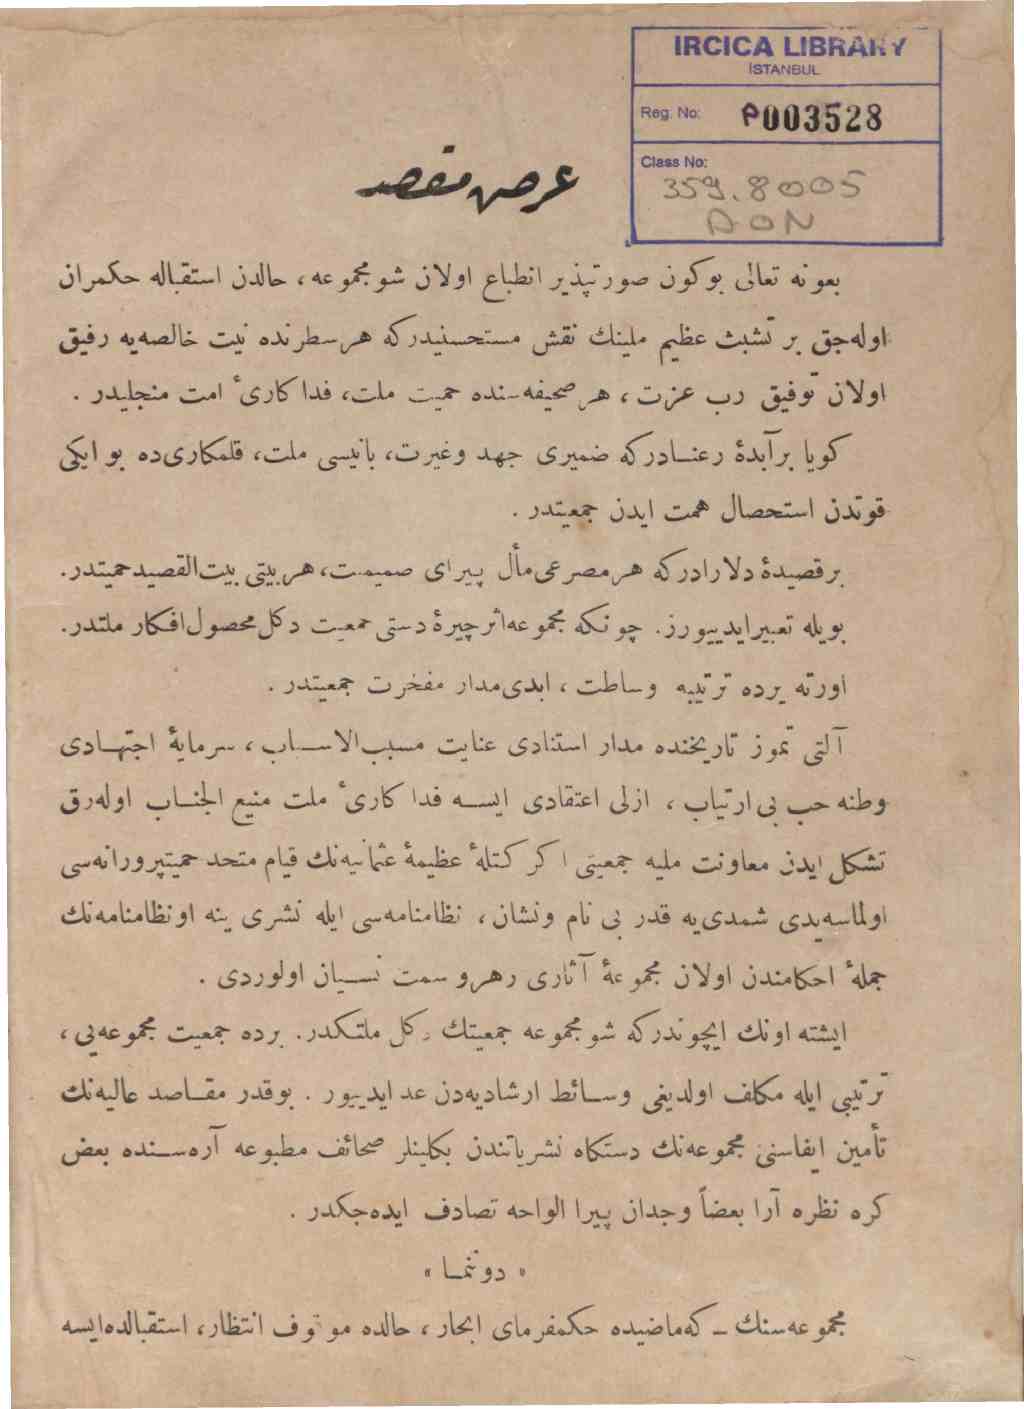 IRCICA LIBRARY
İSTANBUL
Reg. No: P003528
Class No:
359.8005
DON
عرض مقصد
بعونه تعالی بوكون صورتپذیر انطباع اولان شو مجموعه ، حالدن استقباله حكمران
اوله‌جق بر تشبث عظیم ملینك نقش مستحسنیدركه هر سطرنده نیت خالصه‌یه رفیق
اولان توفیق رب عزت ، هر صحیفه‌سنده حمیت ملت، فداكارئ امت منجلیدر .
كویا برآبدۀ رعنـادركه ضمیری جهد وغیرت، بانیسی ملت، قلمكاری‌ده بو ایكی
قوتدن استحصال همت ایدن جمعیتدر .
برقصیدۀ دلارادركه هرمصرعی مآل پیرای صمیمیت، هربیتی بیت‌القصید حمیتدر.
بویله تعبیرایدییورز. چونكه مجموعه‌اثرچیرۀ دستی جمعیت دكل محصول‌افكار ملتدر.
اورته یرده ترتیبه وساطت ، ابدی‌مدار مفخرت جمعیتدر .
آلتی تموز تاریخنده مدار استنادی عنایت مسبب‌الاسـباب ، سرمایۀ اجتهـادی
وطنه حب بی‌ارتیاب ، ازلی اعتقادی ایسـه فداكارئ ملت منیع الجنـاب اوله‌رق
تشكل ایدن معاونت ملیه جمعیتی اكر كتلۀ عظیمۀ عثمانیه‌نك قیام متحد حمیتپرورانه‌سی
اولماسه‌یدی شمدی‌یه قدر بی نام ونشان ، نظامنامه‌سی ایله نشری ینه اونظامنامه‌نك
جملۀ احكامندن اولان مجموعۀ آثاری رهرو سمت نسـیان اولوردی .
ایشته اونك ایچوندركه شو مجموعه جمعیتك دكل ملتكدر. برده جمعیت مجموعه‌یی ،
ترتیبی ایله مكلف اولدیغی وسـائط ارشادیه‌دن عد ایدییور . بوقدر مقـاصد عالیه‌نك
تأمین ایفاسنی مجموعه‌نك دستكاه نشریاتندن بكلینلر صحائف مطبوعه آره‌سـنده بعض
كره نظره آرا بعضاً وجدان پیرا الواحه تصادف ایده‌جكدر .
« دوننمـا »
مجموعه‌سنك ــ كه‌ماضیده حكمفرمای ابحار ، حالده موقوف انتظار، استقبالده‌ایسه